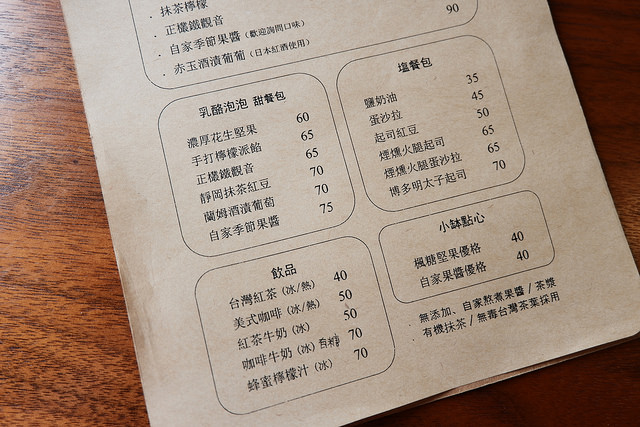 · 抹茶檸檬
· 正欉鐵觀音
· 自家季節果醬（歡迎詢問口味）
· 赤玉酒漬葡葡（日本紅酒使用） 90
乳酪泡泡 甜餐包
濃厚花生堅果 60
手打檸檬派餡 65
正欉鐵觀音 65
靜岡抹茶紅豆 70
蘭姆酒漬葡萄 70
自家季節果醬 75
塩餐包
鹽奶油 35
蛋沙拉 45
起司紅豆 50
煙燻火腿起司 65
煙燻火腿蛋沙拉 65
博多明太子起司 70
飲品
台灣紅茶（冰/熱） 40
美式咖啡（冰/熱） 50
紅茶牛奶（冰） 50
咖啡牛奶（冰）有糖 70
蜂蜜檸檬汁（冰） 70
小缽點心
楓糖堅果優格 40
自家果醬優格 40
· 無添加、自家熬煮果醬 / 茶漿
· 有機抹茶 / 無毒台灣茶葉採用